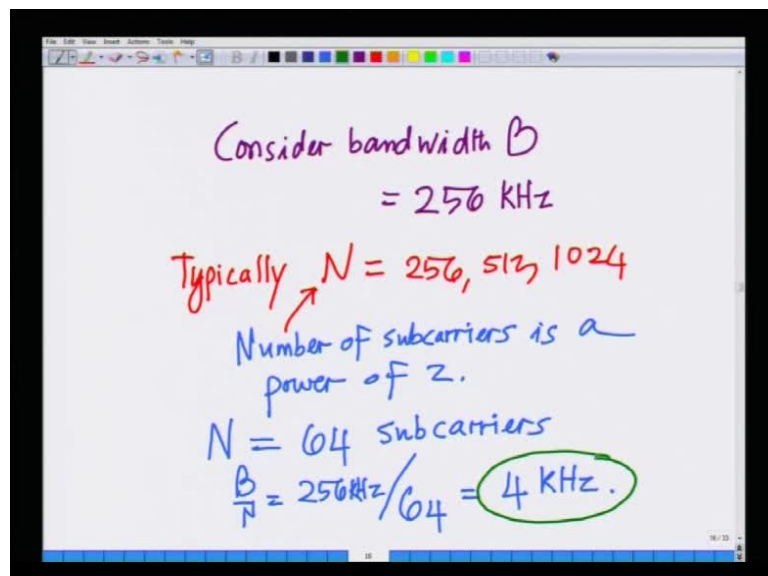 File Edit View Insert Actions Tools Help
Consider bandwidth B
= 256 KHz
Typically N = 256, 512, 1024
Number of subcarriers is a
power of 2.
N = 64 subcarriers
B/N = 256 KHz/64 = 4 KHz.